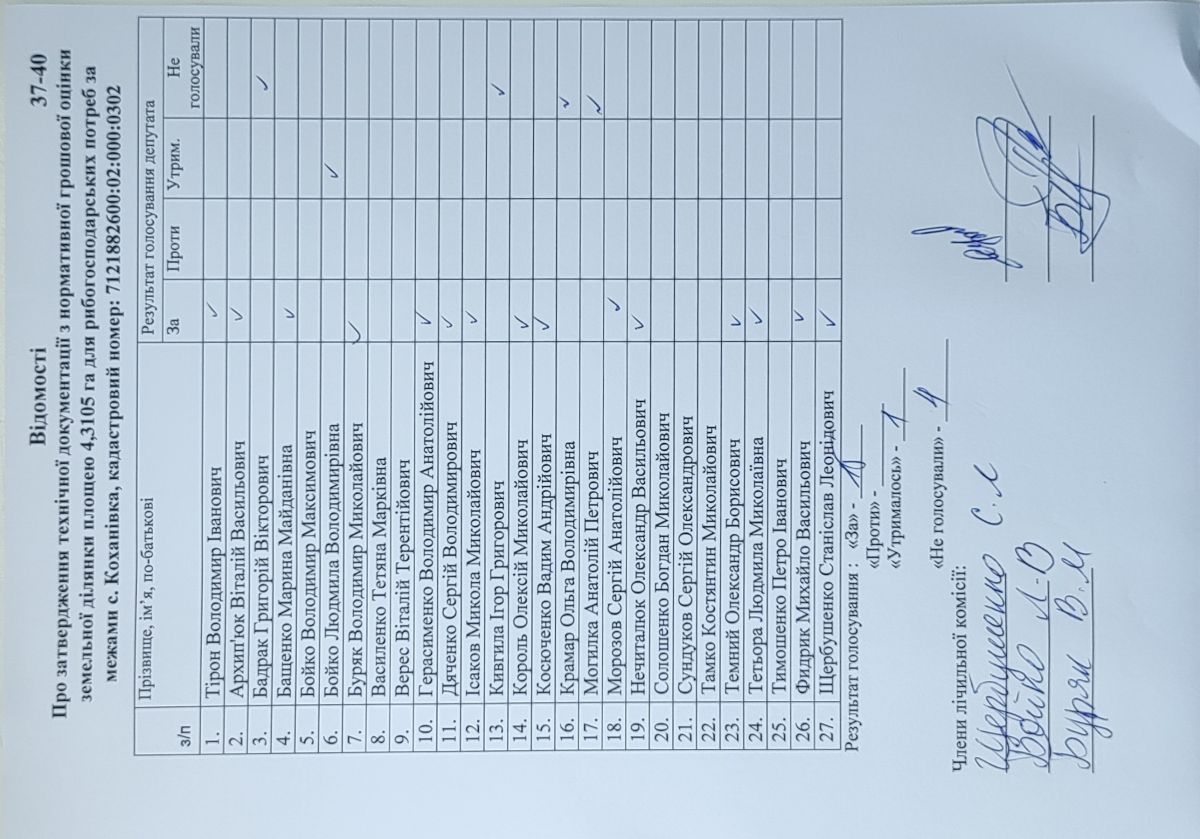 Відомості 37-40
Про затвердження технічної документації з нормативної грошової оцінки
земельної ділянки площею 4,3105 га для рибогосподарських потреб за
межами с. Коханівка, кадастровий номер: 7121882600:02:000:0302
з/п Прізвище, ім’я, по-батькові Результат голосування депутата
За Проти Утрим. Не голосували
1. Тірон Володимир Іванович ✓
2. Архип'юк Віталій Васильович ✓
3. Бадрак Григорій Вікторович ✓
4. Бащенко Марина Майданівна ✓
5. Бойко Володимир Максимович
6. Бойко Людмила Володимирівна ✓
7. Буряк Володимир Миколайович ✓
8. Василенко Тетяна Марківна
9. Верес Віталій Терентійович
10. Герасименко Володимир Анатолійович ✓
11. Дяченко Сергій Володимирович ✓
12. Ісаков Микола Миколайович ✓
13. Кивгила Ігор Григорович ✓
14. Король Олексій Миколайович ✓
15. Косюченко Вадим Андрійович ✓
16. Крамар Ольга Володимирівна ✓
17. Могилка Анатолій Петрович ✓
18. Морозов Сергій Анатолійович ✓
19. Нечиталюк Олександр Васильович ✓
20. Солошенко Богдан Миколайович
21. Сундуков Сергій Олександрович
22. Тамко Костянтин Миколайович
23. Темний Олександр Борисович ✓
24. Тетьора Людмила Миколаївна ✓
25. Тимошенко Петро Іванович
26. Фидрик Михайло Васильович ✓
27. Щербушенко Станіслав Леонідович ✓
Результат голосування : «За» -
«Проти» -
«Утрималось» - 1
«Не голосували» - 4
Члени лічильної комісії:
Щербушенко С.Л
Бойко Л.В
Буряк В.М